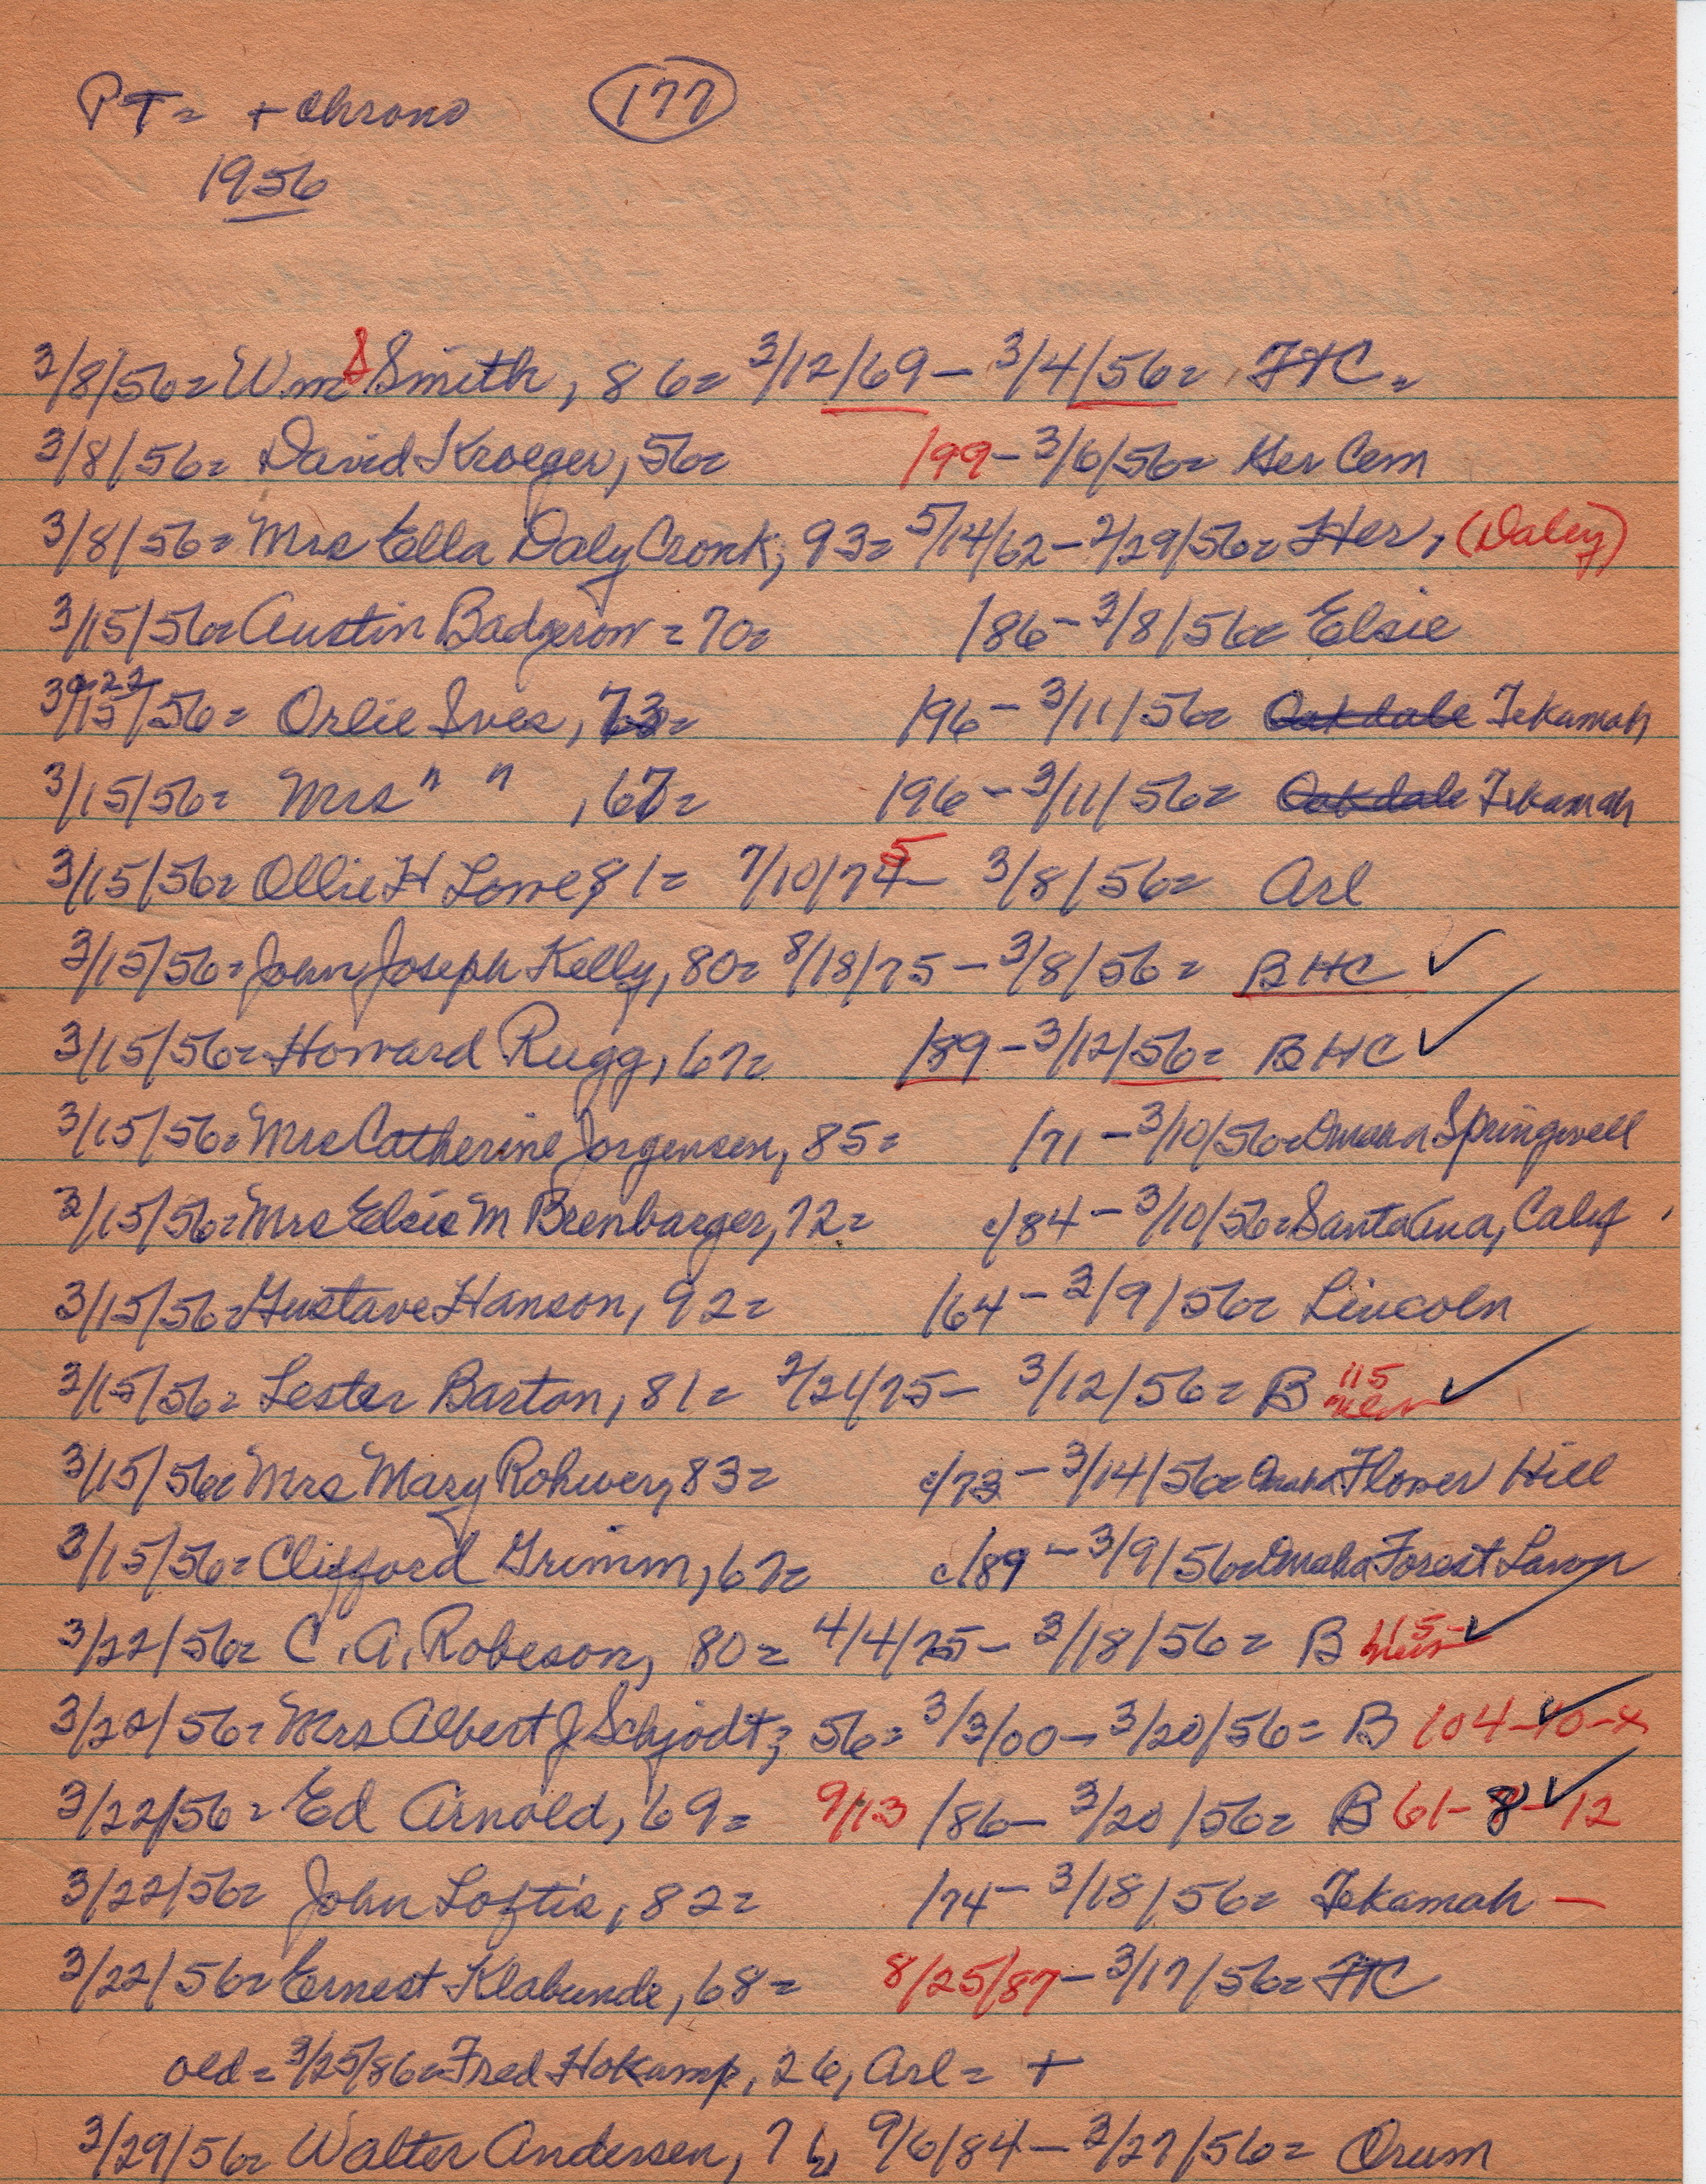 PT= + Chrono 177
1956
3/8/56= Wm S Smith, 86= 3/12/69 - 3/4/56= FtC.
3/8/56= David Kroeger, 56= /99 - 3/6/56= Her Cem
3/8/56= Mrs Ella Daly Cronk, 93= 5/14/62 - 2/29/56= Her, (Daley)
3/15/56= Austin Badgerow = 70= /86 - 3/8/56= Elsie
/56= Orlie Ives, 73= /96 - 3/11/56= Oakdale Tekamah
3/15/56= Mrs " " , 67= /96 - 3/11/56= Oakdale Tekamah
3/15/56= Ollie H Lowe, 81= 7/10/74 5 - 3/8/56= Arl
3/15/56= John Joseph Kelly, 80= 8/18/75 - 3/8/56= BHC ✓
3/15/56= Howard Rugg, 67= /89 - 3/12/56= BHC ✓
3/15/56= Mrs Catherine Jorgensen, 85= /71 - 3/10/56= Omaha Springwell
3/15/56= Mrs Elsie M Brenbarger, 72= c/84 - 3/10/56= Santa Ana, Calif
3/15/56= Gustave Hanson, 92= /64 - 3/9/56= Lincoln
3/15/56= Lester Barton, 81= 2/21/75 - 3/12/56= B 115 new ✓
3/15/56= Mrs Mary Rohwer, 83= c/73 - 3/14/56= Omaha Flower Hill
3/15/56= Clifford Grimm, 67= c/89 - 3/9/56= Omaha Forest Lawn
3/22/56= C. A. Robeson, 80= 4/4/75 - 3/18/56= B 115 new ✓
3/22/56= Mrs Albert J Schjodt, 56= 3/3/00 - 3/20/56= B 104-10-x ✓
3/22/56= Ed Arnold, 69= 9/13 /86 - 3/20/56= B 61-8-12 ✓
3/22/56= John Loftis, 82= /74 - 3/18/56= Tekamah -
3/22/56= Ernest Klabunde, 68= 8/25/87 - 3/17/56= FtC
old= 3/25/86= Fred Hokamp, 26, Arl= +
3/29/56= Walter Andersen, 71, 9/6/84 - 3/27/56= Orum